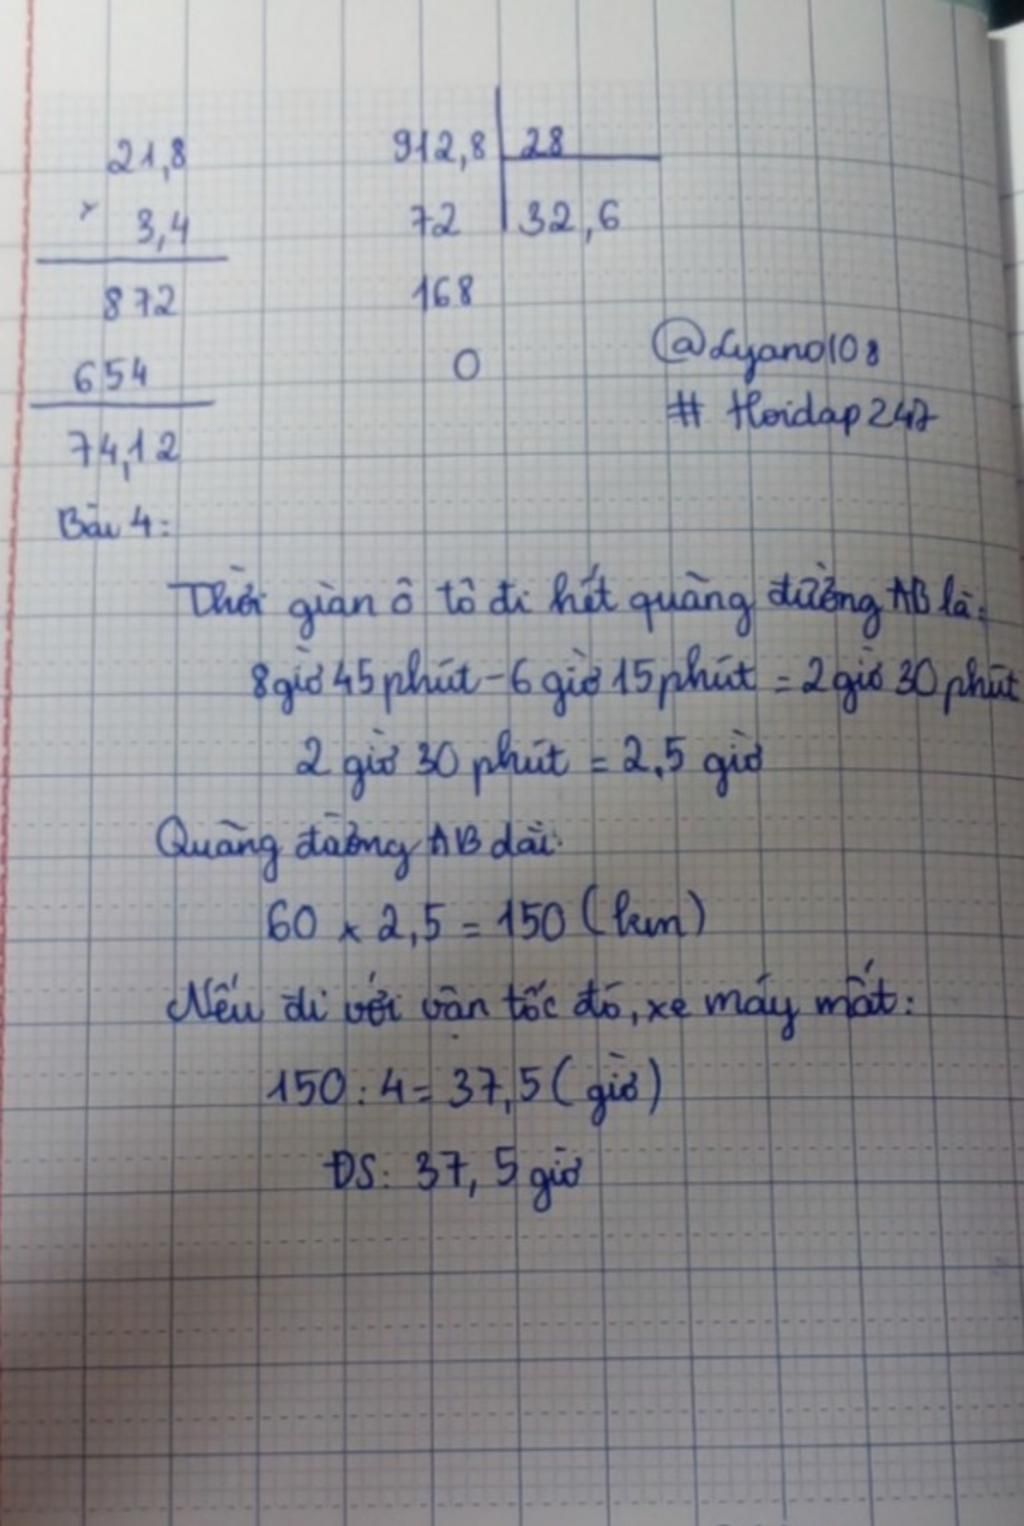 21,8
× 3,4
872
654
74,12
912,8 | 28
72 | 32,6
168
0
@Lyano108
# Hoidap247
Bài 4:
Thời gian ô tô đi hết quãng đường AB là:
8 giờ 45 phút - 6 giờ 15 phút = 2 giờ 30 phút
2 giờ 30 phút = 2,5 giờ
Quãng đường AB dài:
60 × 2,5 = 150 (km)
Nếu đi với vận tốc đó, xe máy mất:
150 : 4 = 37,5 (giờ)
ĐS: 37,5 giờ